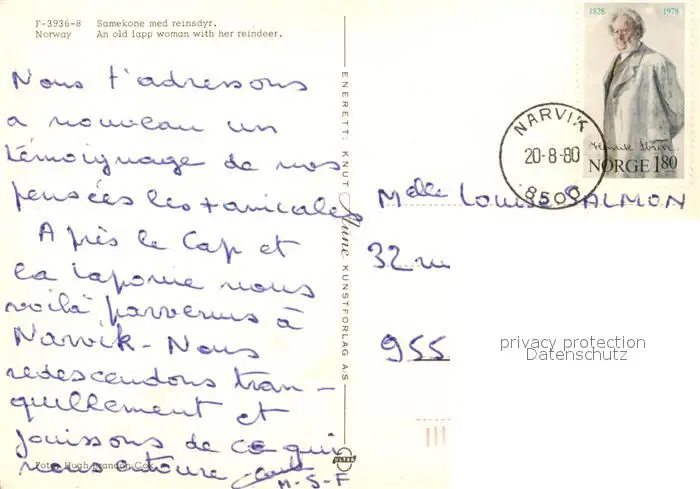 F-3936-8 Samekone med reinsdyr.
Norway An old lapp woman with her reindeer.
Nous t'adressons
a nouveau un
témoignage de nos
pensées les + amicales
Après le Cap et
la Laponie nous
voilà parvenus à
Narvik - Nous
redescendons tran-
quillement et
jouissons de ce qui
nous entoure
M-S-F
Foto: Hugh Brandon Cox
ENERETT: KNUT Aune KUNSTFORLAG A/S
1828 1978
Henrik Ibsen
NORGE 180
NARVIK
20-8-80
8500
Mdlle Louise SALMON
32
955
privacy protection
Datenschutz